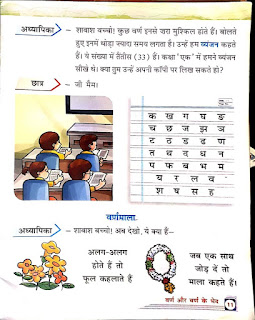 अध्यापिका – शाबाश बच्चो! कुछ वर्ण इनसे ज़रा मुश्किल होते हैं। बोलते
हुए इनमें थोड़ा ज्यादा समय लगता है। उन्हें हम व्यंजन कहते
हैं। ये संख्या में तैंतीस (33) हैं। कक्षा 'एक' में हमने व्यंजन
सीखे थे। क्या तुम उन्हें अपनी कॉपी पर लिख सकते हो?
छात्र – जी मैम।
क ख ग घ ङ
च छ ज झ ञ
ट ठ ड ढ ण
त थ द ध न
प फ ब भ म
य र ल व
श ष स ह
वर्णमाला
अध्यापिका – शाबाश बच्चो! अब देखो, ये क्या हैं–
अलग-अलग
होते हैं तो
फूल कहलाते हैं
जब एक साथ
जोड़ दें तो
माला कहते हैं!
वर्ण और वर्ण के भेद 11